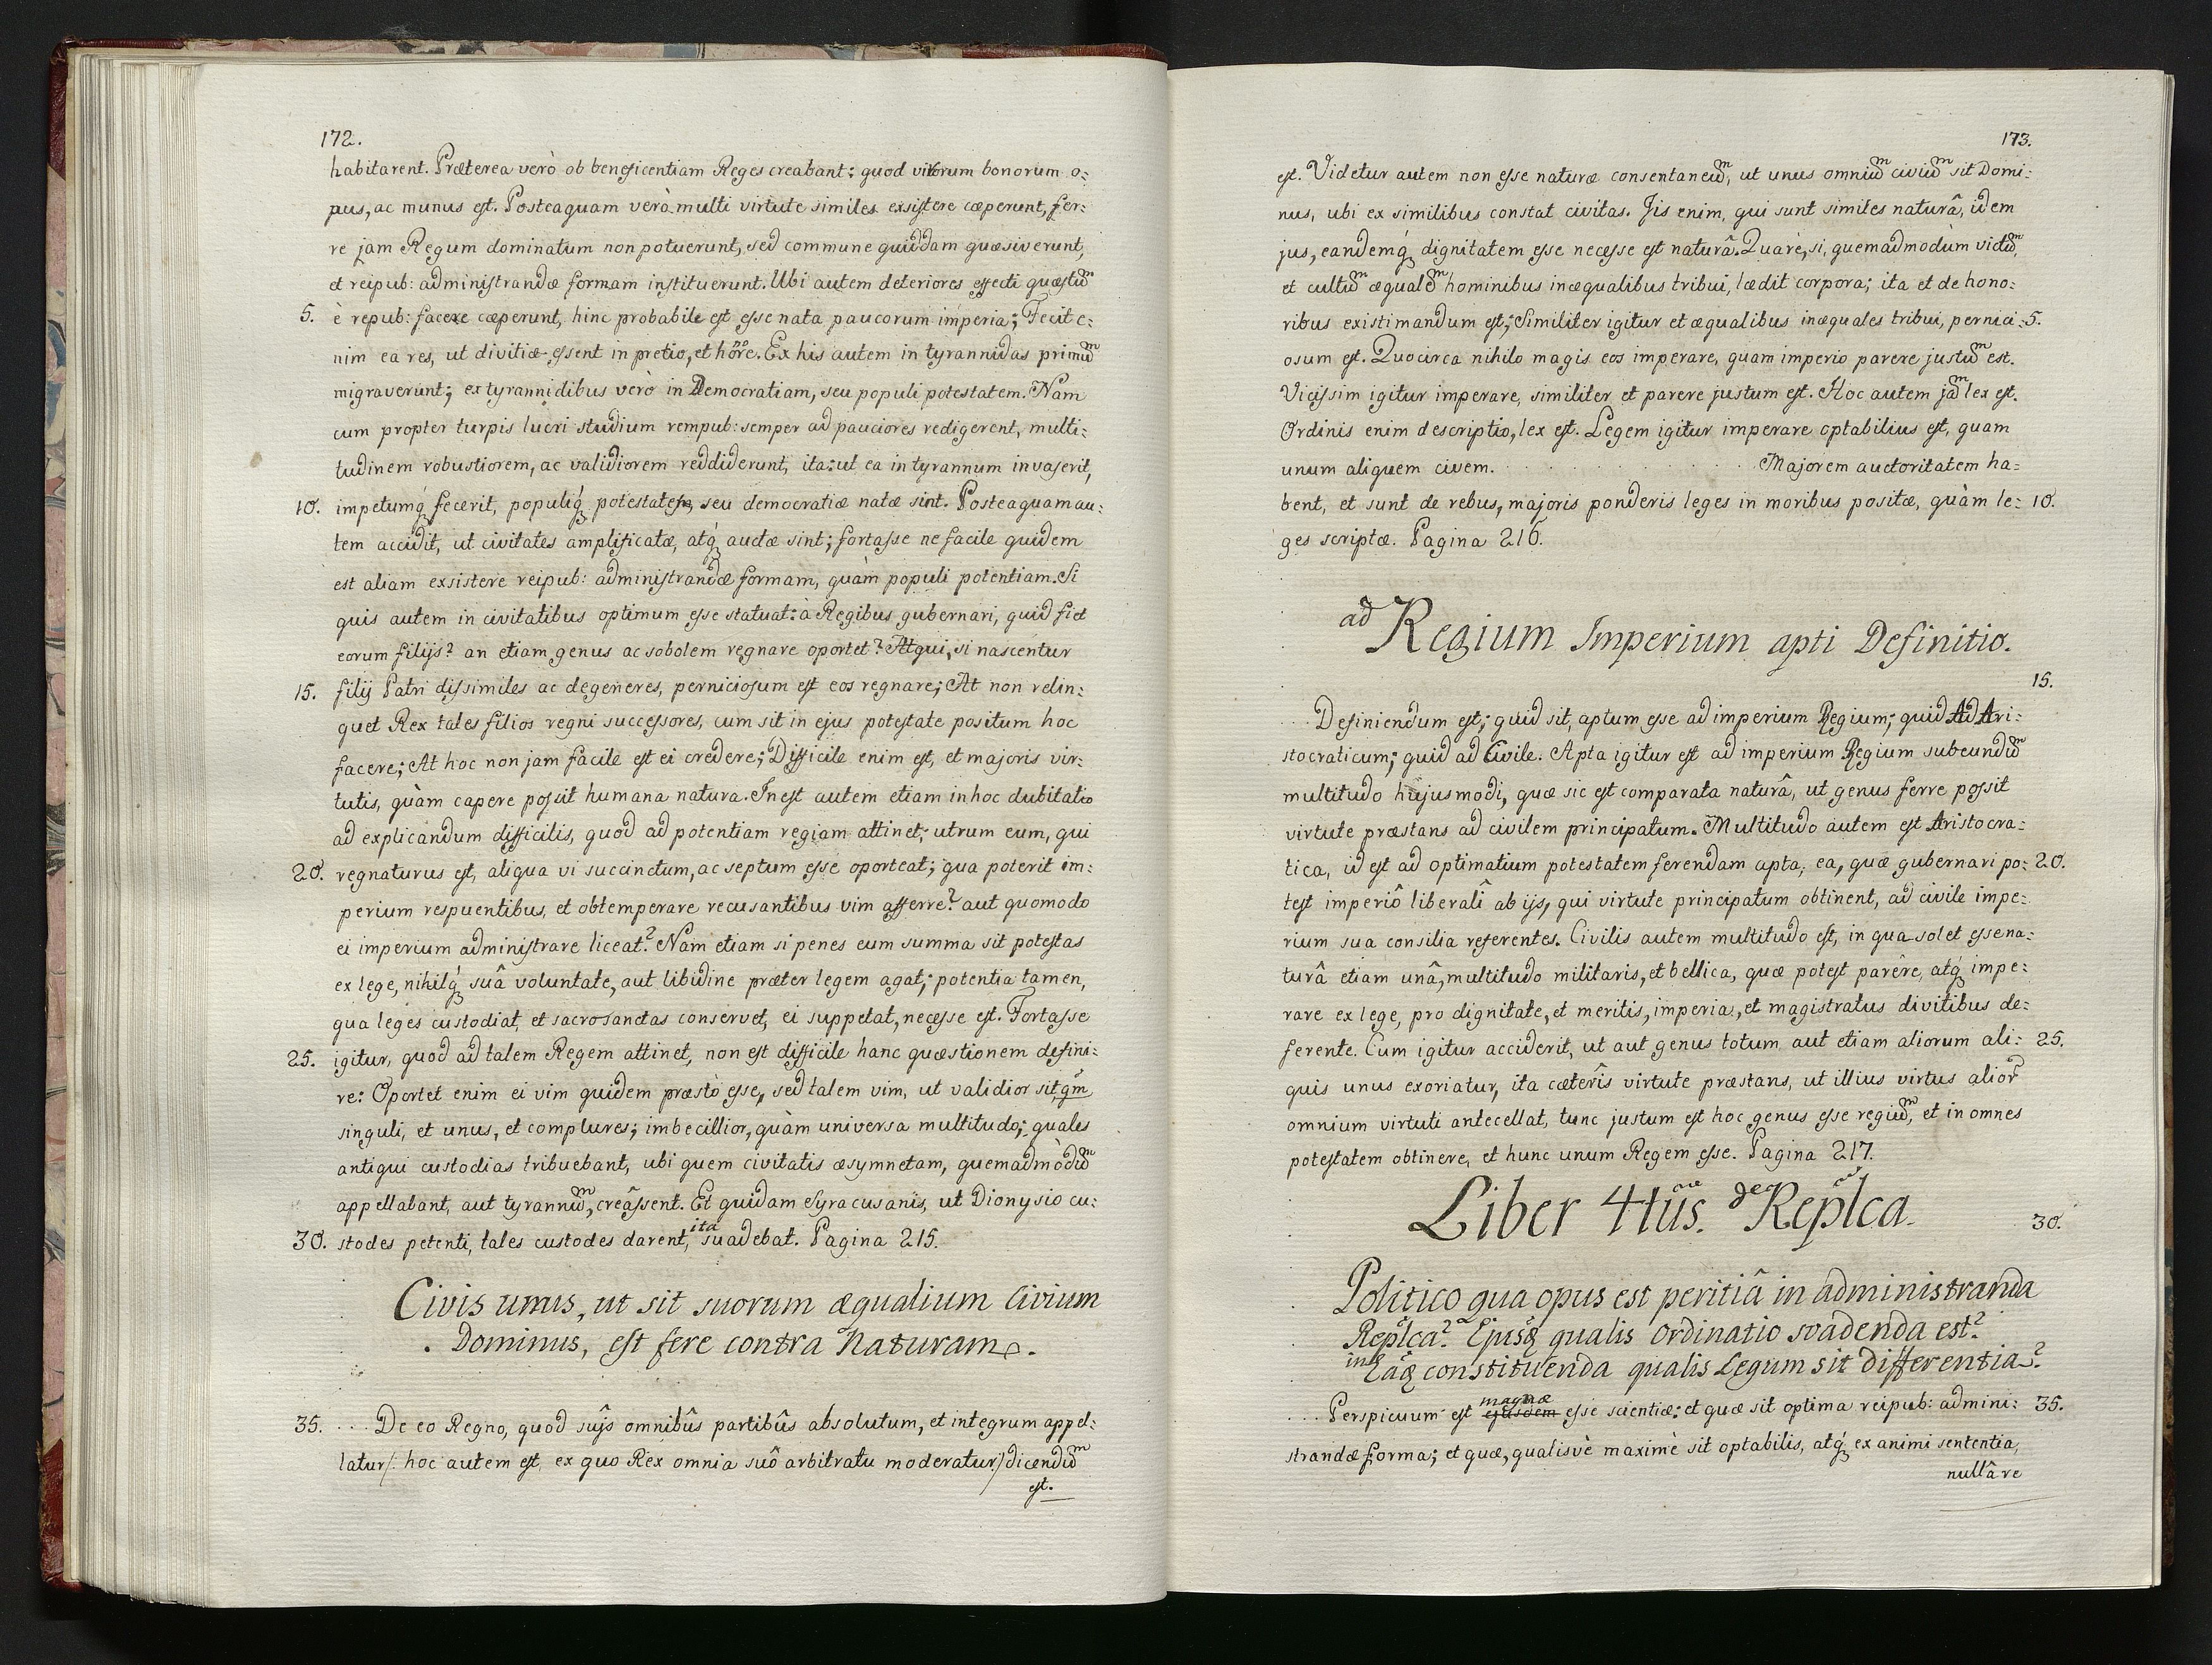 172.
habitarent. Præterea verò ob beneficentiam Reges creabant: quod virorum bonorum o:
pus, ac munus est. Posteaquam verò multi virtute similes exsistere cæperunt, fer:
re jam Regum dominatum non potuerunt, sed commune quiddam quæsiverunt,
et reipub: administrandæ formam instituerunt. Ubi autem deteriores effecti quæstum
5. è repub: facere cæperunt, hinc probabile est esse nata paucorum imperia; Fecit e:
nim ea res, ut divitiæ essent in pretio, et hõre. Ex his autem in tyrannidas primum
migraverunt; ex tyrannidibus verò in Democratiam, seu populi potestatem. Nam
cum propter turpis lucri studium rempub: semper ad pauciores redigerent, multi:
tudinem robustiorem, ac validiorem reddiderunt, ita: ut ea in tyrannum invaserit,
10. impetumq́ fecerit, populiq́ potestates, seu democratiæ natæ sint. Posteaquam au:
tem accidit, ut civitates amplificatæ, atq́ auctæ sint; fortasse ne facile quidem
est aliam exsistere reipub: administrandæ formam, quàm populi potentiam. Si
quis autem in civitatibus optimum esse statuat: à Regibus gubernari, quid fiet
eorum filijs? an etiam genus ac sobolem regnare oportet? Atqui, si nascentur
15. filij Patri dissimiles ac degeneres, perniciosum est eos regnare; At non relin:
quet Rex tales filios regni successores, cum sit in ejus potestate positum hoc
facere; At hoc non jam facile est ei credere; Difficile enim est, et majoris vir:
tutis, quàm capere possit humana natura. Inest autem etiam in hoc dubitatio
ad explicandum difficilis, quod ad potentiam regiam attinet; utrum eum, qui
20. regnaturus est, aliqua vi succinctum, ac septum esse oporteat; qua poterit im:
perium respuentibus, et obtemperare recusantibus vim afferre? aut quomodo
ei imperium administrare liceat? Nam etiam si penes eum summa sit potestas
ex lege, nihilq́ suâ voluntate, aut libidine præter legem agat; potentia tamen,
qua leges custodiat, et sacrosanctas conservet, ei suppetat, necesse est. Fortasse
25. igitur, quod ad talem Regem attinet, non est difficile hanc quæstionem defini:
re: Oportet enim ei vim quidem præstò esse, sed talem vim, ut validior sit, qm̃
singuli, et unus, et complures; imbecillior, quàm universa multitudo; quales
antiqui custodias tribuebant, ubi quem civitatis æsymnetam, quemadmòdum
appellabant, aut tyrannum, creâssent. Et quidam Syracusanis, ut Dionysio cu:
30. stodes petenti, tales custodes darent, ita suadebat. Pagina 215.
Civis unus, ut sit suorum æqualium Civium
. Dominus, est fere contra Naturam.
35. ... De eo Regno, quod suĵs omnibûs partibûs absolutum, et integrum appel:
latur /: hoc autem est, ex quo Rex omnia suô arbitratu moderatur :/ dicendum
est.
173.
est. Videtur autem non esse naturæ consentaneum, ut unus omnium civium sit Domi:
nus, ubi ex similibus constat civitas. Jis enim, qui sunt similes naturâ, idem
jus, eandemq́ dignitatem esse necesse est naturâ. Quarè, si, quemadmodùm victum,
et cultum æqualem hominibus inæqualibus tribui, lædit corpora; ita et de hono:
ribus existimandum est; Similiter igitur et æqualibus inæquales tribui, pernici: 5.
osum est. Quocirca nihilo magis eos imperare, quam imperio parere justum est.
Vicissim igitur imperare, similiter et parere justum est. Hoc autem jam lex est.
Ordinis enim descriptio, lex est. Legem igitur imperare optabilius est, quam
unum aliquem civem. . . . . . . . . . . . Majorem auctoritatem ha:
bent, et sunt de rebus, majoris ponderis leges in moribus positæ, quàm le: 10.
ges scriptæ. Pagina 216.
ad Regium Imperium apti Definitio.
15.
... Definiendum est; quid sit, aptum esse ad imperium Regium; quid Ad Ari:
stocraticum; quid ad Civile. Apta igitur est ad imperium Regium subeundum
multitudo hujusmodi, quæ sic est comparata naturâ, ut genus ferre possit
virtute præstans ad civilem principatum. Multitudo autem est Aristocra:
tica, id est ad optimatium potestatem ferendam apta, ea, quæ gubernari po: 20.
test imperiô liberalî ab ijs, qui virtute principatum obtinent, ad civile impe:
rium sua consilia referentes. Civilis autem multitudo est, in qua solet esse na:
turâ etiam unâ, multitudo militaris, et bellica, quæ potest parêre, atq́ impe:
rare ex lege, pro dignitate, et meritis, imperia, et magistratus divitibus de:
ferente. Cum igitur acciderit, ut aut genus totum aut etiam aliorum ali: 25.
quis unus exoriatur, ita cæterîs virtute præstans, ut illius virtus alior̃
omnium virtuti antecellat, tunc justum est hoc genus esse regium, et in omnes
potestatem obtinere, et hunc unum Regem esse. Pagina 217.
Liber 4tus. de Rep̃lca.
30.
Politico qua opus est peritiâ in administranda
Rep̃lca? Ejusq́ qualis Ordinatio svàdenda est?
inq́ eâq́ constituenda qualis Legum sit differentia?
... Perspicuum est ejusdem magnæ esse scientiæ: et quæ sit optima reipub: admini: 35.
strandæ forma; et quæ, qualisvè maximè sit optabilis, atq́ ex animi sententia,
nullâ re